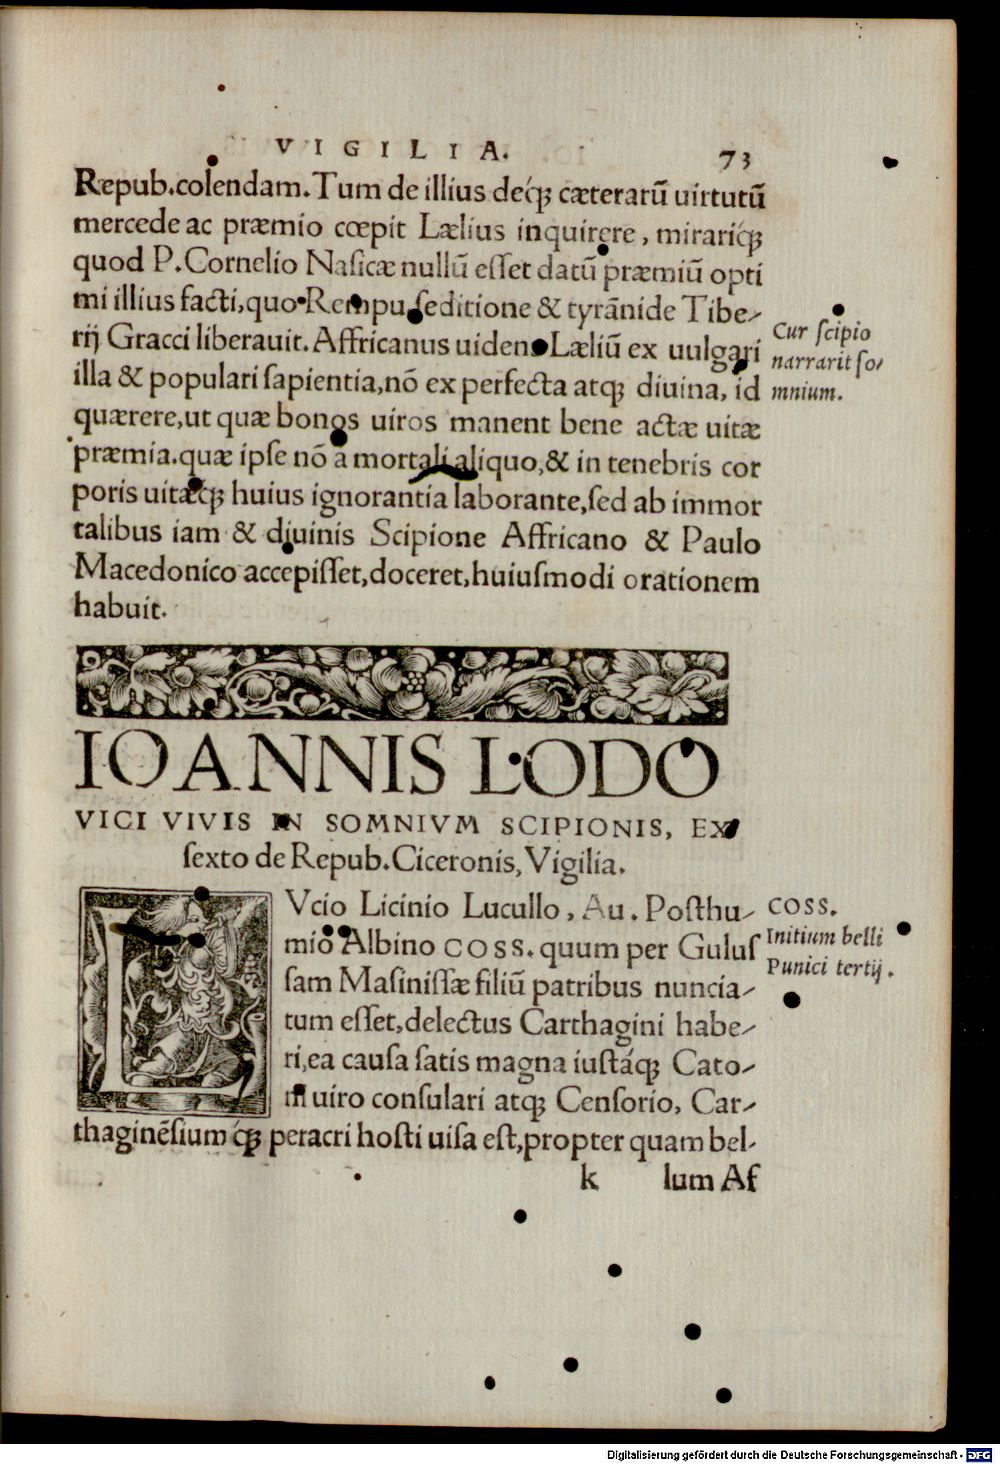 VIGILIA. 73
Repub.colendam.Tum de illius deq́ꝫ cæterarũ uirtutũ
mercede ac præmio cœpit Lælius inquirere, mirariq́ꝫ
quod P.Cornelio Nasicæ nullũ esset datũ præmiũ opti
mi illius facti,quo Rempu. seditione & tyrãnide Tibe-
rij Gracci liberauit. Affricanus uidens Læliũ ex uulgari
illa & populari sapientia,nõ ex perfecta atqꝫ diuina, id
quærere,ut quæ bonos uiros manent bene actæ uitæ
præmia.quæ ipse nõ à mortali aliquo,& in tenebris cor
poris uitæq́ꝫ huius ignorantia laborante,sed ab immor
talibus iam & diuinis Scipione Affricano & Paulo
Macedonico accepisset,doceret,huiusmodi orationem
habuit.
Cur scipio
narrarit so/
mnium.
IOANNIS LODO
VICI VIVIS IN SOMNIVM SCIPIONIS, EX
sexto de Repub.Ciceronis, Vigilia.
Vcio Licinio Lucullo, Au. Posthu-
mio Albino COSS. quum per Gulus
sam Masinissæ filiũ patribus nuncia-
tum esset,delectus Carthagini habe-
ri,ea causa satis magna iustáqꝫ Cato-
ni uiro consulari atqꝫ Censorio, Car-
thaginẽsium q́ꝫ peracri hosti uisa est,propter quam bel-
COSS.
Initium belli
Punici tertij.
k lum Af
Digitalisierung gefördert durch die Deutsche Forschungsgemeinschaft - DFG